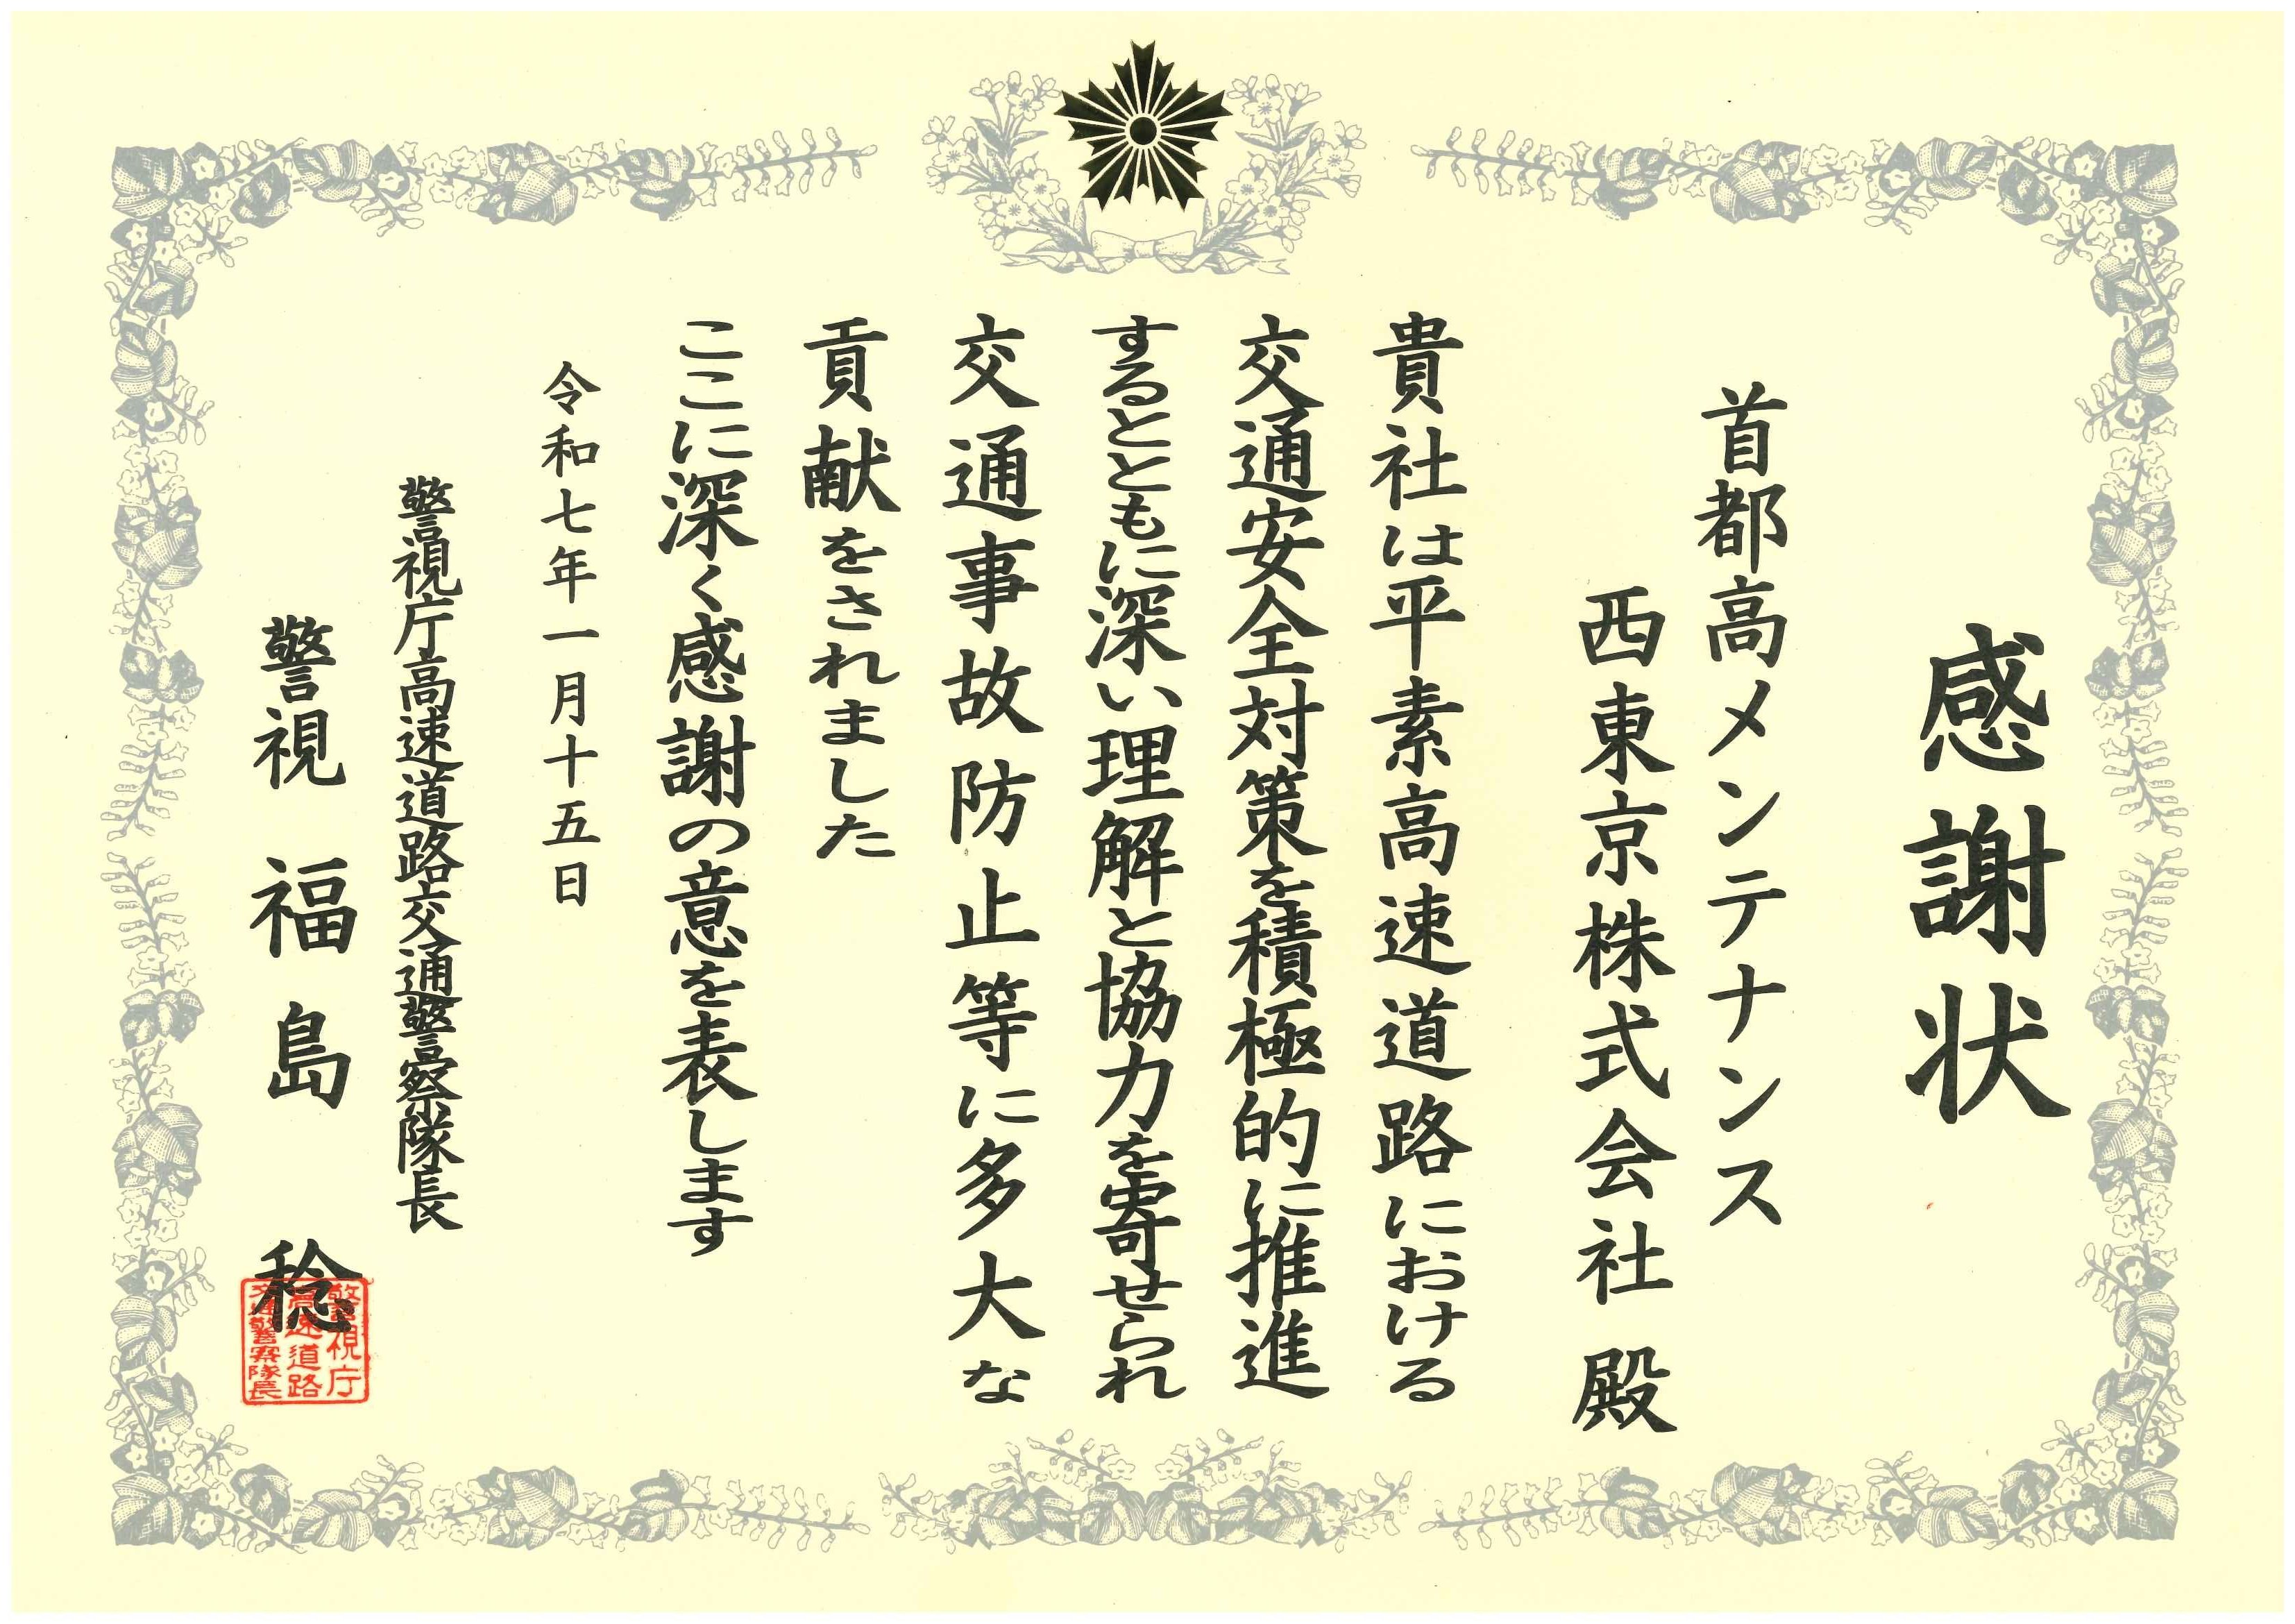 感謝状
首都高メンテナンス
西東京株式会社 殿
貴社は平素高速道路における
交通安全対策を積極的に推進
するとともに深い理解と協力を寄せられ
交通事故防止等に多大な
貢献をされました
ここに深く感謝の意を表します
令和七年一月十五日
警視庁高速道路交通警察隊長
警視 福島 稔
警視庁
高速道路
交通警察隊長